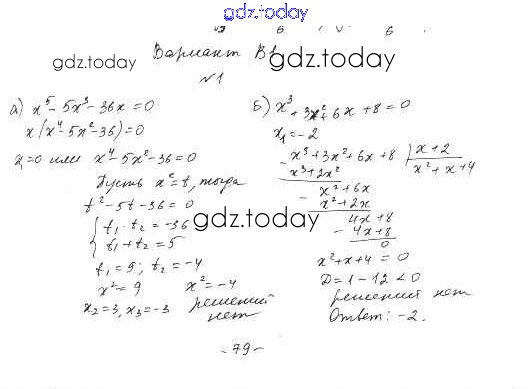 gdz.today
Вариант В1
gdz.today
gdz.today
№1
а) x⁵ - 5x³ - 36x = 0
x(x⁴ - 5x² - 36) = 0
x₁ = 0 или x⁴ - 5x² - 36 = 0
Пусть x² = t, тогда
t² - 5t - 36 = 0
{ t₁ · t₂ = -36
t₁ + t₂ = 5
t₁ = 9; t₂ = -4
x² = 9 x² = -4
x₂ = 3, x₃ = -3 решений нет
gdz.today
б) x³ + 3x² + 6x + 8 = 0
x₁ = -2
- x³ + 3x² + 6x + 8 | x + 2
x³ + 2x² x² + x + 4
x² + 6x
- x² + 2x
4x + 8
- 4x + 8
0
x² + x + 4 = 0
D = 1 - 12 < 0
решений нет
Ответ: -2.
- 79 -